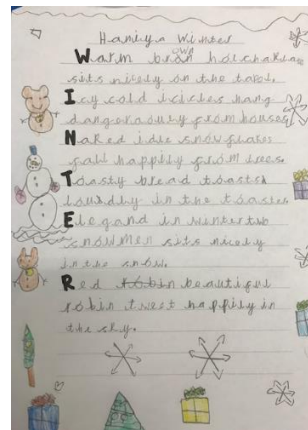 Haniya Winter
Warm brown hotchoklate
sits nicely on the tabel.
Icy cold icicles hang
dangerously from houses
Naked idle snowflakes
fall happily from trees.
Toasty bread toasts
loundly in the toaster
Elegand in winter two
snowmen sits nicely
in the snow.
Red robin beautiful
robin tweet happily in
the sky.